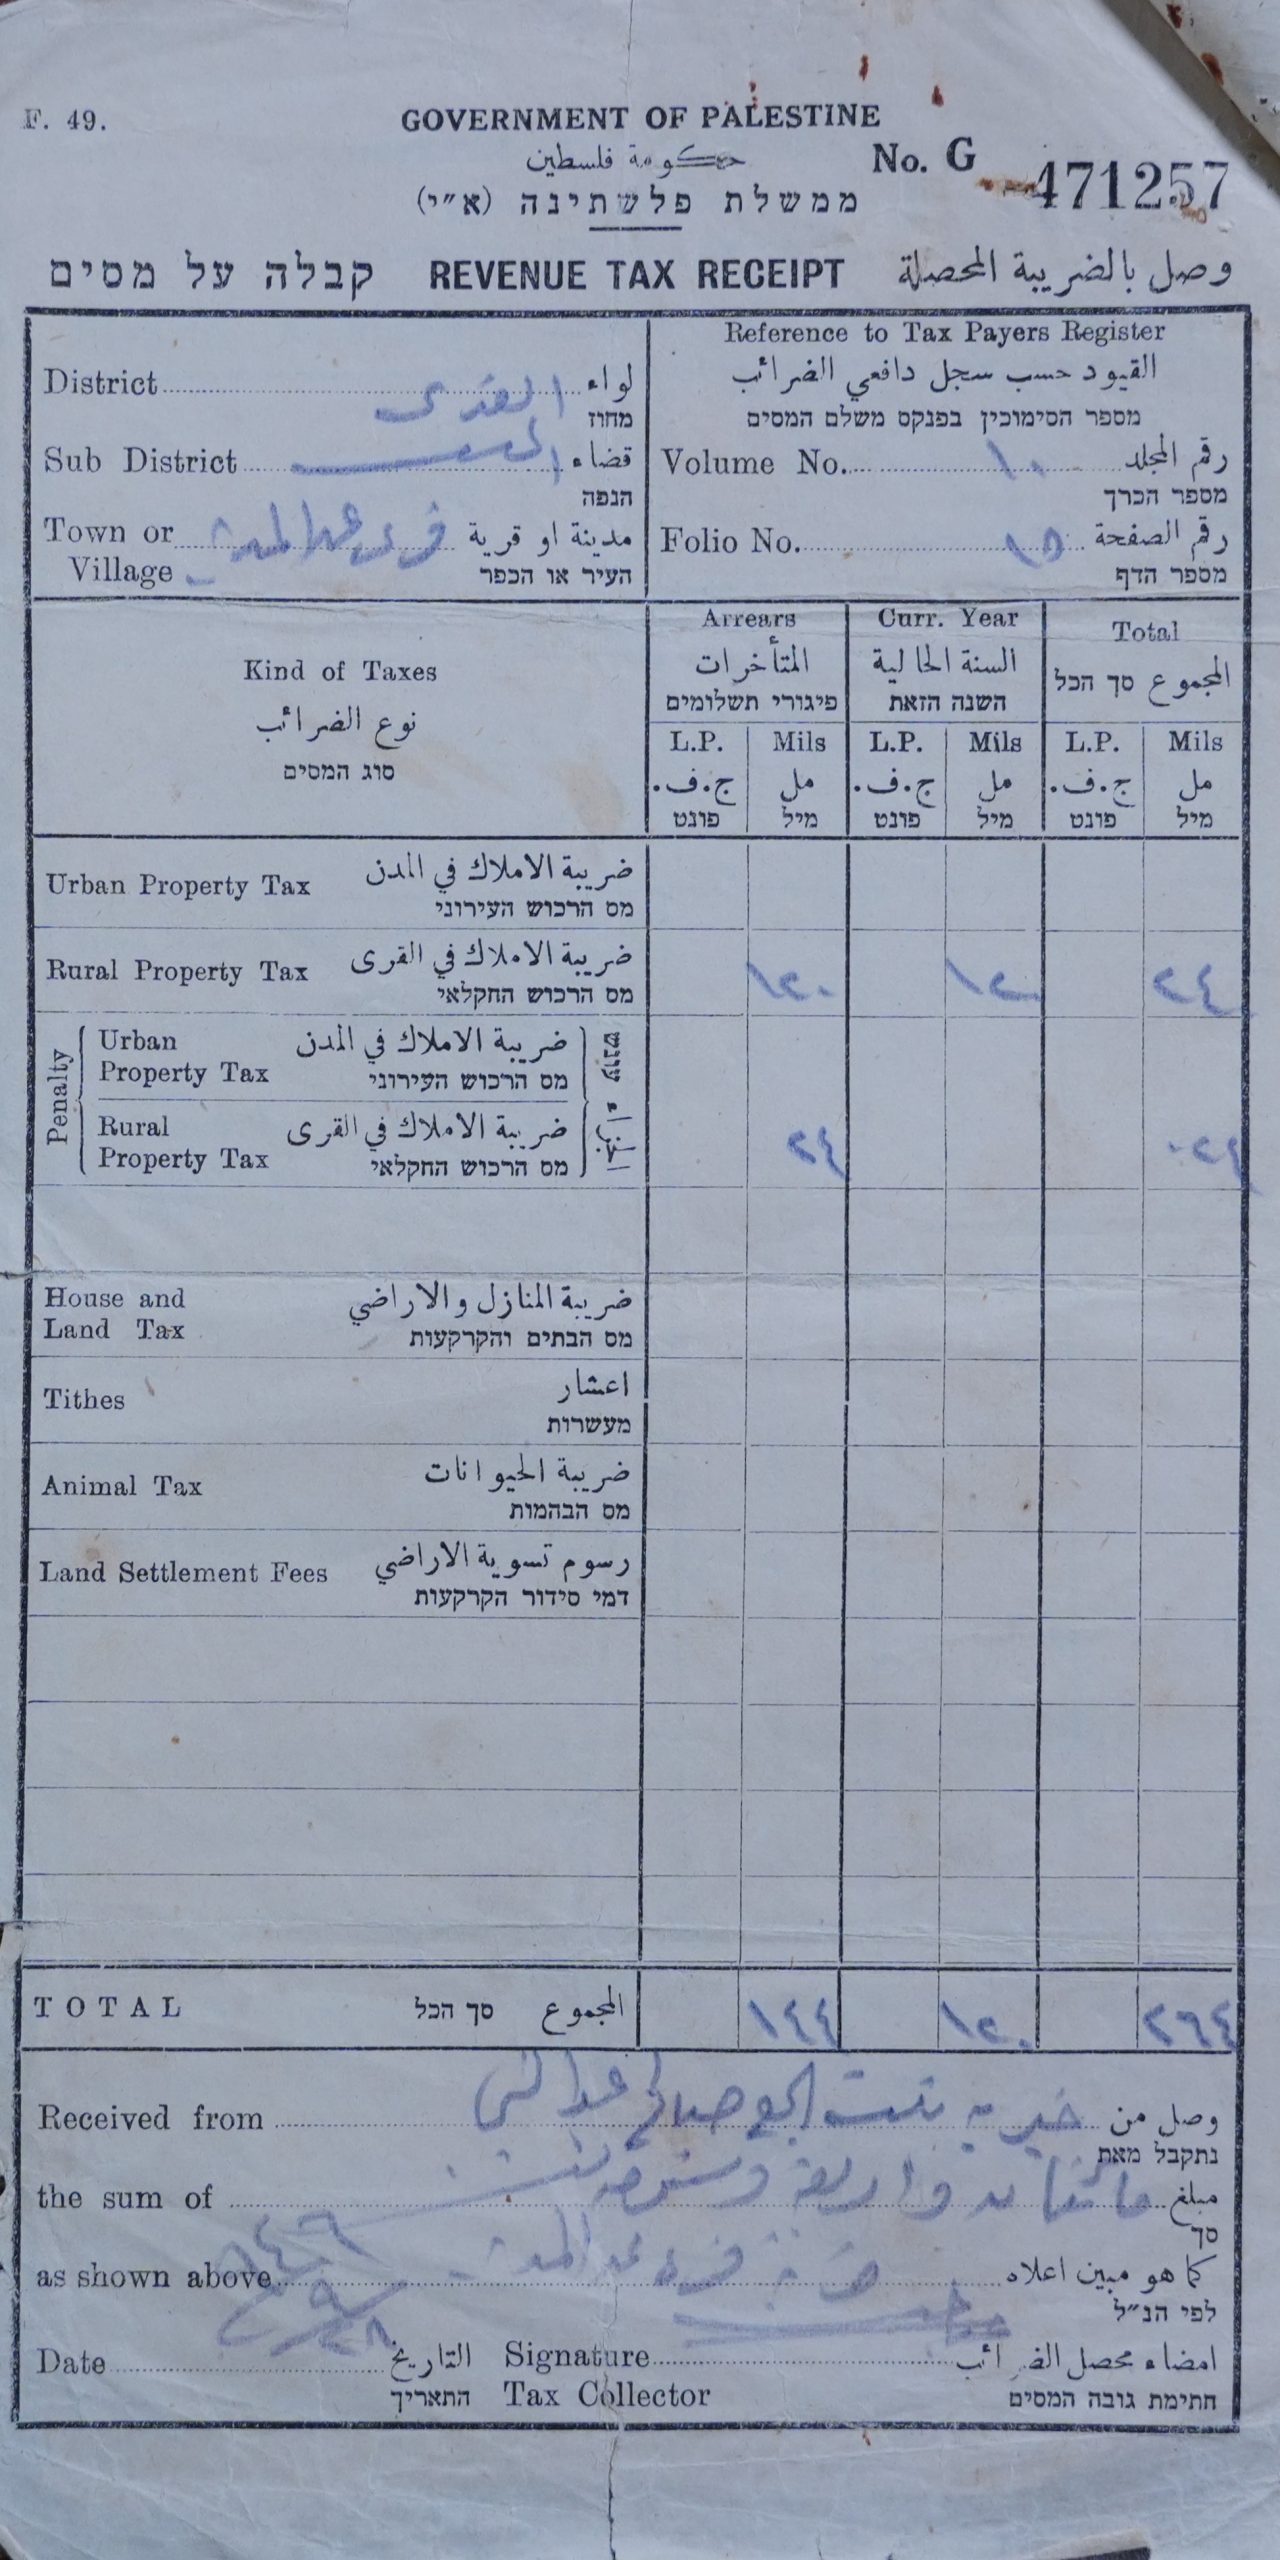 F. 49.
GOVERNMENT OF PALESTINE
حكومة فلسطين
No. G 471257
ממשלת פלשתינה (א״י)
קבלה על מסים REVENUE TAX RECEIPT وصل بالضريبة المحصلة
Reference to Tax Payers Register
القيود حسب سجل دافعي الضرائب
מספר הסימוכין בפנקס משלם המסים
District القدس لواء
מחוז
Sub District قضاء
הנפה
Town or Village مدينة او قرية
העיר או הכפר
Volume No. ١٠ رقم المجلد
מספר הכרך
Folio No. ١٥ رقم الصفحة
מספר הדף
Kind of Taxes
نوع الضرائب
סוג המסים
Arrears
المتأخرات
פיגורי תשלומים
Curr. Year
السنة الحالية
השנה הזאת
Total
المجموع סך הכל
L.P. Mils L.P. Mils L.P. Mils
ج.ف. مل ج.ف. مل ج.ف. مل
פונט מיל פונט מיל פונט מיל
Urban Property Tax ضريبة الاملاك في المدن
מס הרכוש העירוני
Rural Property Tax ضريبة الاملاك في القرى ١٢٠ ١٢٠ ٢٤٠
מס הרכוש החקלאי
Penalty
Urban Property Tax ضريبة الاملاك في المدن
מס הרכוש העירוני
עונש
Rural Property Tax ضريبة الاملاك في القرى ٢٤ ٠٢٤
מס הרכוש החקלאי
House and Land Tax ضريبة المنازل والاراضي
מס הבתים והקרקעות
Tithes اعشار
מעשרות
Animal Tax ضريبة الحيوانات
מס הבהמות
Land Settlement Fees رسوم تسوية الاراضي
דמי סידור הקרקעות
TOTAL סך הכל المجموع ١٤٤ ١٢٠ ٢٦٤
Received from وصل من
נתקבל מאת
the sum of مبلغ
סך
as shown above كما هو مبين اعلاه
לפי הנ״ל
Date التاريخ Signature امضاء محصل الضرائب
התאריך Tax Collector חתימת גובה המסים